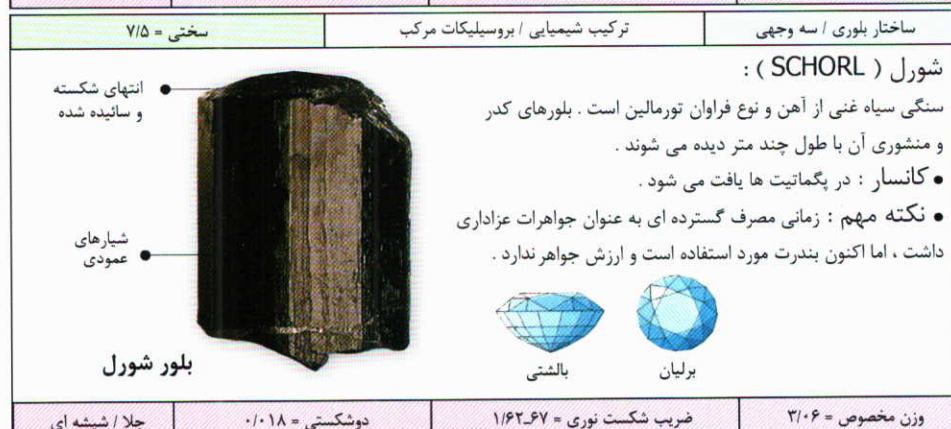 ساختار بلوری / سه وجهی
ترکیب شیمیایی / بروسیلیکات مرکب
سختی = ۷/۵
شورل ( SCHORL ) :
سنگی سیاه غنی از آهن و نوع فراوان تورمالین است . بلورهای کدر
و منشوری آن با طول چند متر دیده می شوند .
● کانسار : در پگماتیت ها یافت می شود .
● نکته مهم : زمانی مصرف گسترده ای به عنوان جواهرات عزاداری
داشت ، اما اکنون بندرت مورد استفاده است و ارزش جواهر ندارد .
انتهای شکسته
و سائیده شده
شیارهای
عمودی
بلور شورل
برلیان
بالشتی
وزن مخصوص = ۳/۰۶
ضریب شکست نوری = ۱/۶۲_۶۷
دوشکستی = ۰/۰۱۸
جلا / شیشه ای